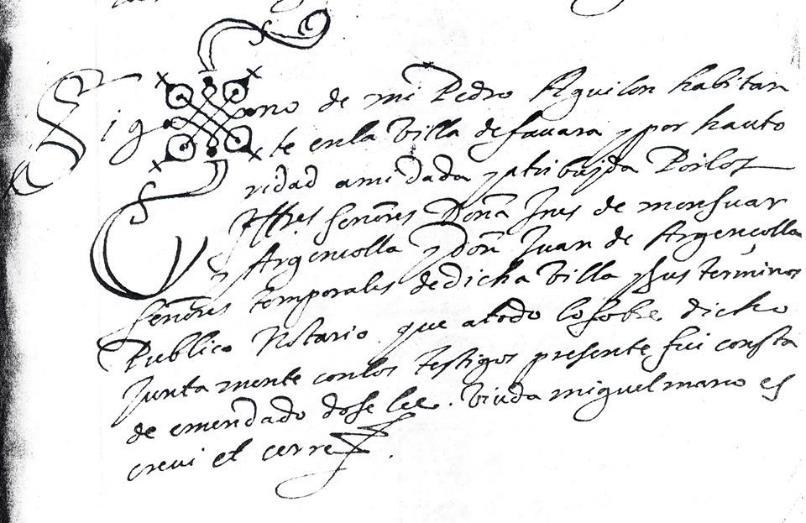 Sig no de mi Pedro Aguilon habitan
te en la Villa de favara y por hauto
ridad a mi dada y atribuyda Por los
Illres señores Doña Ines de monsuar
y Argençolla y Don Juan de Argençolla
señores temporales de dicha Villa y sus terminos
Publico Notario que a todo lo sobre dicho
Junta mente con los testigos presente fui consta
de emendado dose lee. Viuda miguel es
creui et cerre.